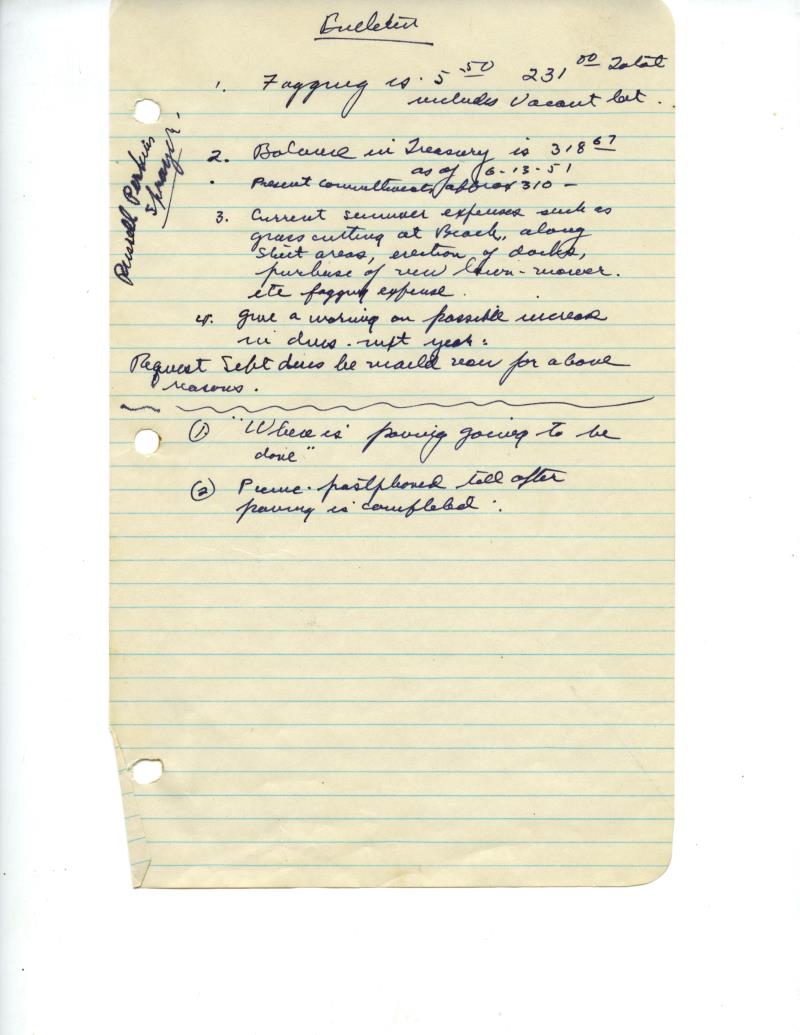 Bulletin
1. Fogging is 5.50 231.00 Total
includes Vacant lot.
Russell Perkins
Sprayer.
2. Balance in Treasury is 318.67
as of 6-13-51
. Present committments approx 310 -
3. Current summer expenses such as
grass cutting at Beach, along
Street areas, erection of docks,
purchase of new lawn-mower.
etc fogging expense.
4. give a warning on possible increase
in dues. next year.
Request Sept dues be mailed now for above
reasons.
(1) "Where is paving going to be
done"
(2) Picnic. postphoned till after
paving is completed.